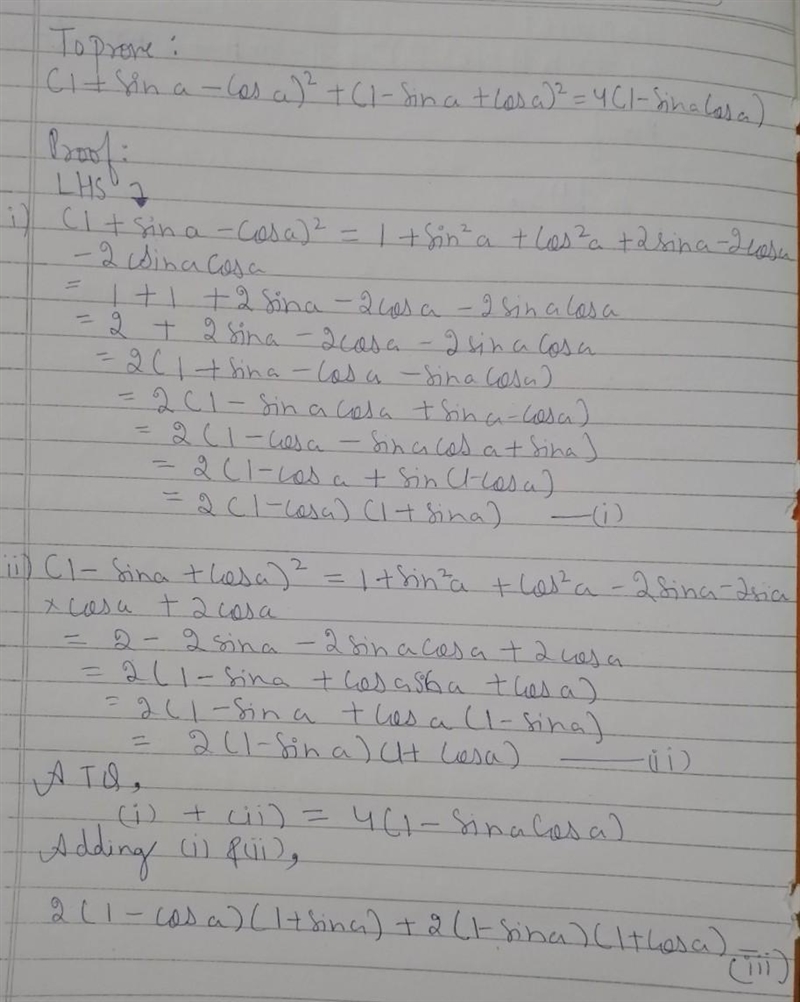 To prove:
(1 + sin a - cos a)² + (1 - sin a + cos a)² = 4(1 - sin a cos a)
Proof:
LHS
i) (1 + sin a - cos a)² = 1 + sin²a + cos²a + 2 sin a - 2 cos a
- 2 sin a cos a
= 1 + 1 + 2 sin a - 2 cos a - 2 sin a cos a
= 2 + 2 sin a - 2 cos a - 2 sin a cos a
= 2(1 + sin a - cos a - sin a cos a)
= 2(1 - sin a cos a + sin a - cos a)
= 2(1 - cos a - sin a cos a + sin a)
= 2(1 - cos a + sin(1 - cos a)
= 2(1 - cos a)(1 + sin a) —(i)
ii) (1 - sin a + cos a)² = 1 + sin²a + cos²a - 2 sin a - 2 sin a
× cos a + 2 cos a
= 2 - 2 sin a - 2 sin a cos a + 2 cos a
= 2(1 - sin a + cos a + cos a)
= 2(1 - sin a + cos a(1 - sin a)
= 2(1 - sin a)(1 + cos a) —(ii)
ATQ,
(i) + (ii) = 4(1 - sin a cos a)
Adding (i) & (ii),
2(1 - cos a)(1 + sin a) + 2(1 - sin a)(1 + cos a) —
(iii)